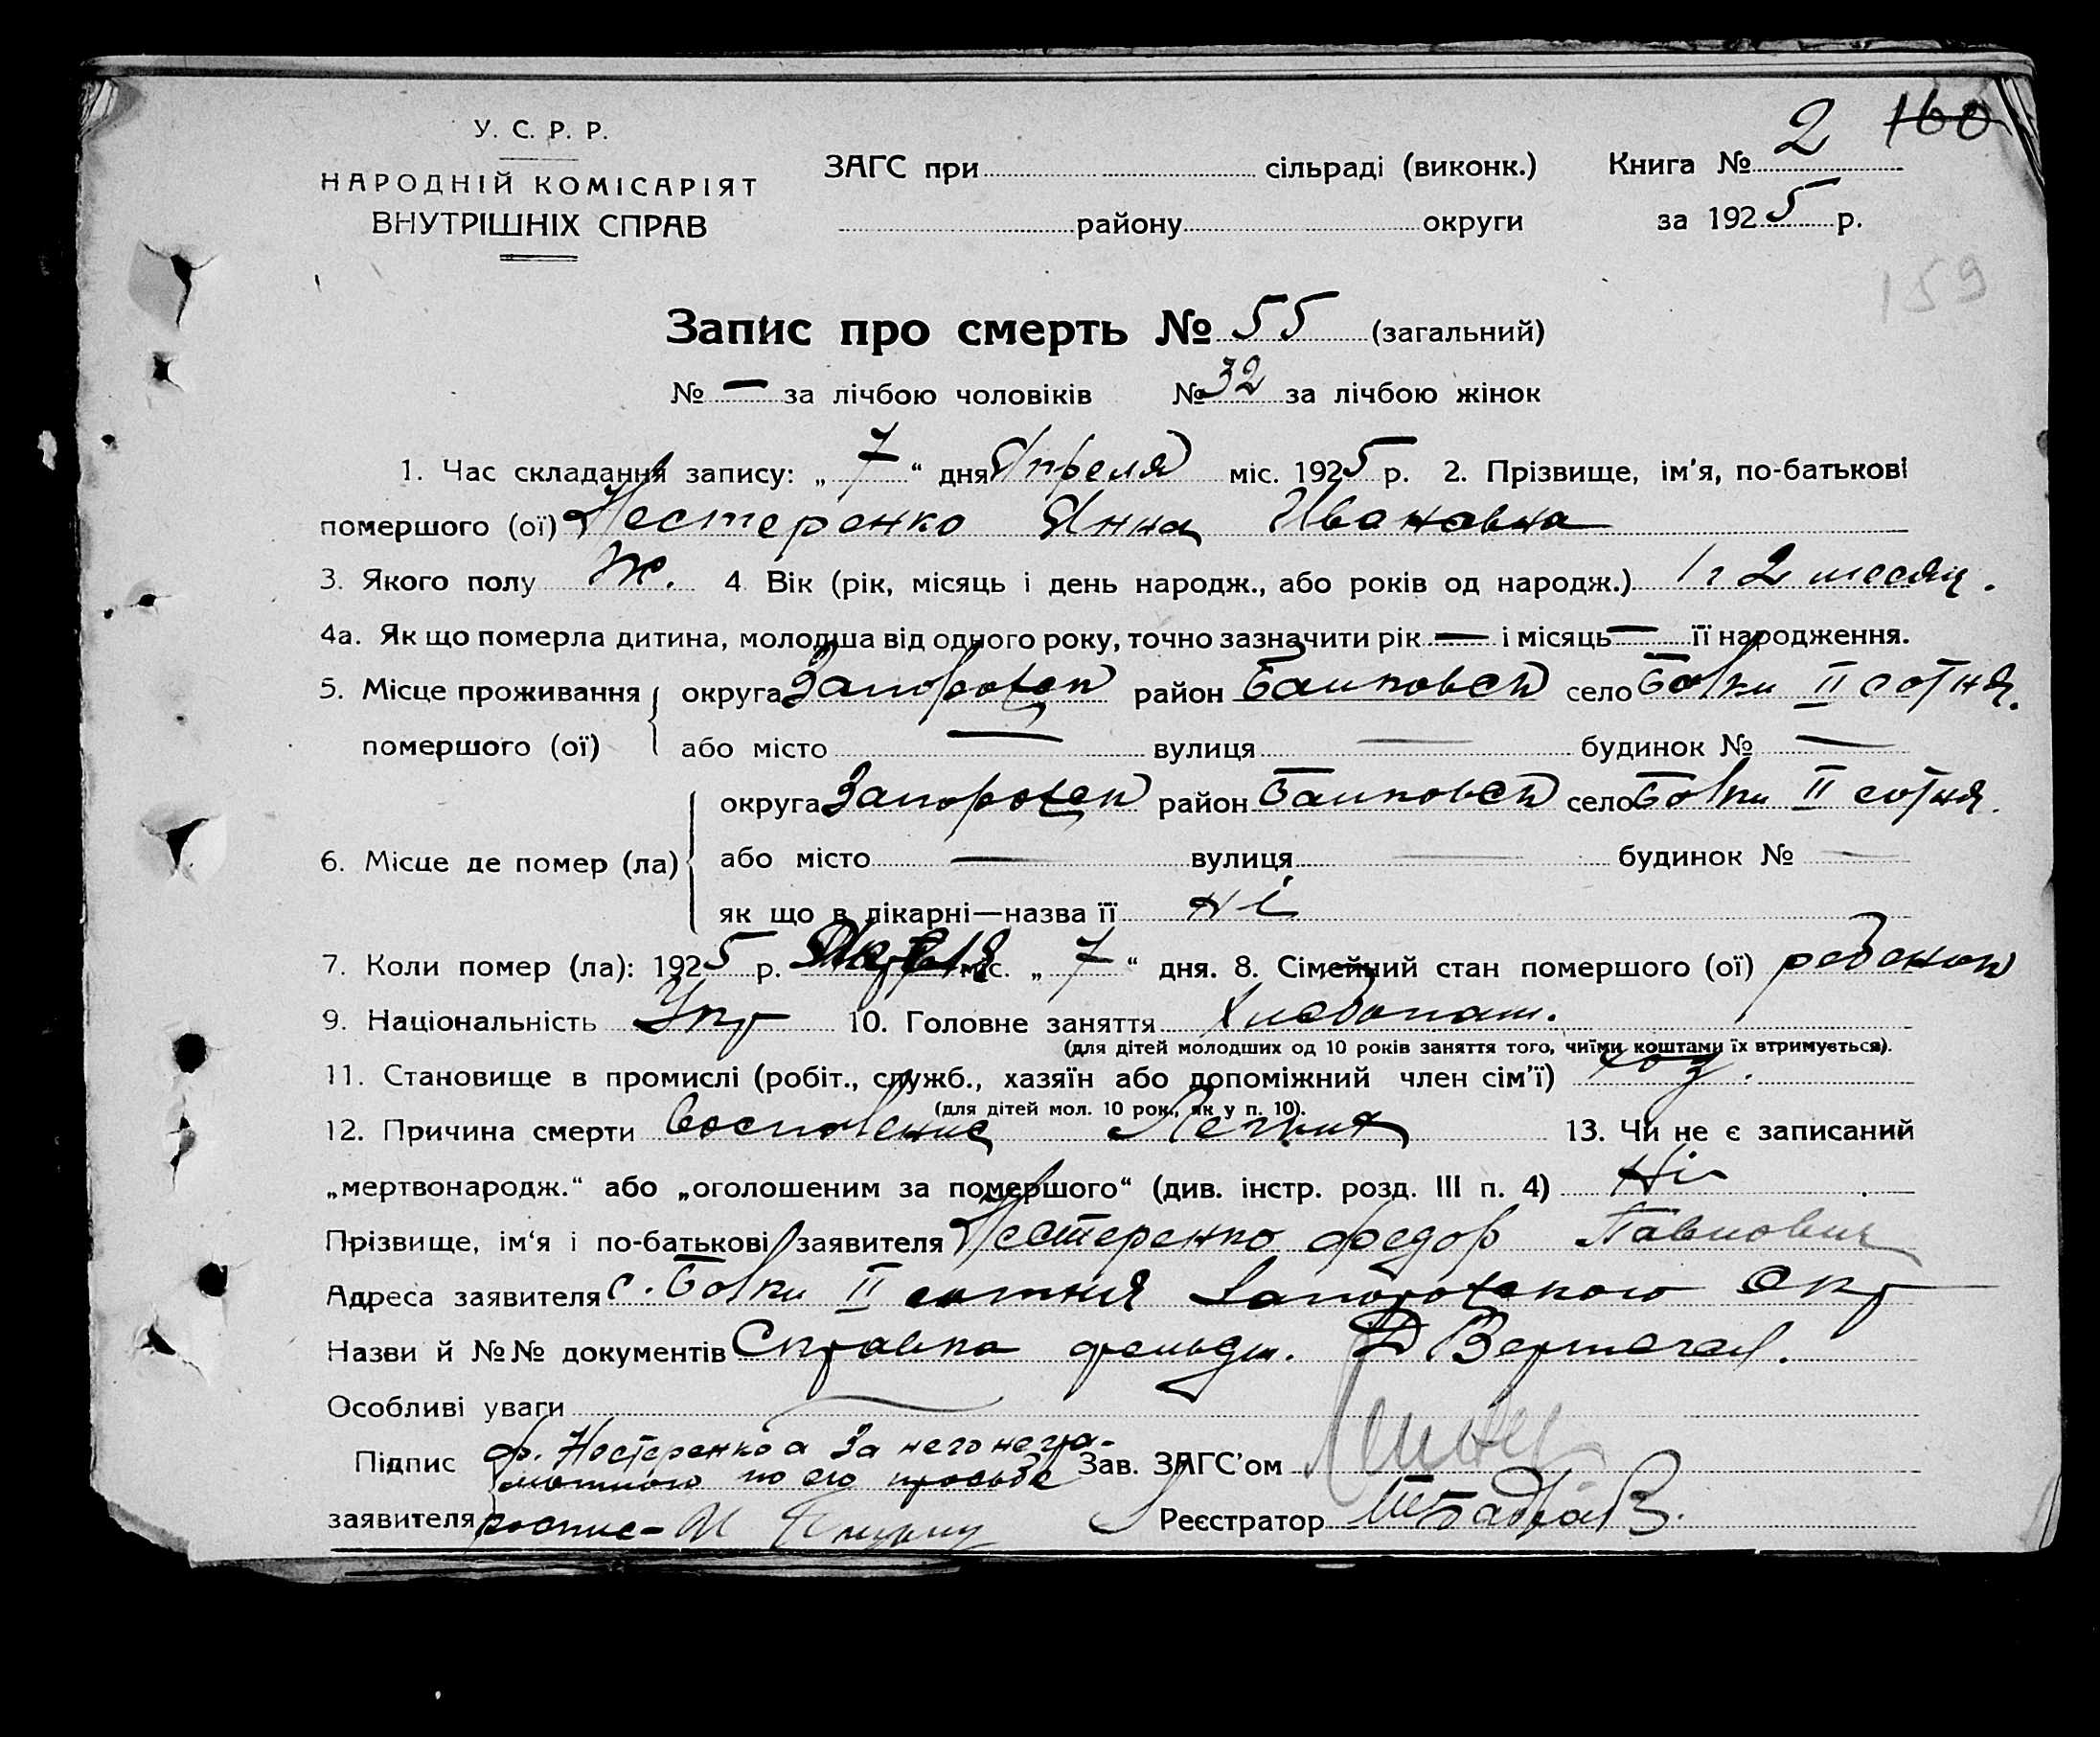 У. С. Р. Р.
НАРОДНІЙ КОМІСАРІЯТ
ВНУТРІШНІХ СПРАВ
ЗАГС при сільраді (виконк.)
району округи
Книга № 2 160
за 1925 р.
159
Запис про смерть № 55 (загальний)
№ — за лічбою чоловіків № 32 за лічбою жінок
1. Час складання запису: „7“ дня Апреля міс. 1925 р. 2. Прізвище, ім'я, по-батькові
помершого (ої) Нестеренко Анна Ивановна
3. Якого полу Ж. 4. Вік (рік, місяць і день народж., або років од народж.) 1 г 2 месяц.
4а. Як що померла дитина, молодша від одного року, точно зазначити рік — і місяць — її народження.
5. Місце проживання округа Запорожск район Балковск село Балки II сотня.
помершого (ої) або місто — вулиця — будинок № —
округа Запорожск район Балковск село Балки II сотня.
6. Місце де помер (ла) або місто — вулиця — будинок № —
як що в лікарні—назва її ні
7. Коли помер (ла): 1925 р. Апреля міс. „7“ дня. 8. Сімейний стан помершого (ої) ребенок
9. Національність Укр 10. Головне заняття Хлебопаш.
(для дітей молодших од 10 років заняття того, чиїми коштами їх втримується).
11. Становище в промислі (робіт., служб., хазяїн або допоміжний член сім'ї) хоз.
(для дітей мол. 10 рок., як у п. 10).
12. Причина смерти Воспаление Легких 13. Чи не є записаний
„мертвонародж.“ або „оголошеним за помершого“ (див. інстр. розд. III п. 4) Ні
Прізвище, ім'я і по-батькові заявителя Нестеренко Федор Павлович
Адреса заявителя с. Балки II сотня Запорожского Окр
Назви й №№ документів Справка фельдш.
Особливі уваги
Підпис Ф. Нестеренко а За него негра-
мотного по его просьбе Зав. ЗАГС'ом
заявителя роспис- И
Реєстратор